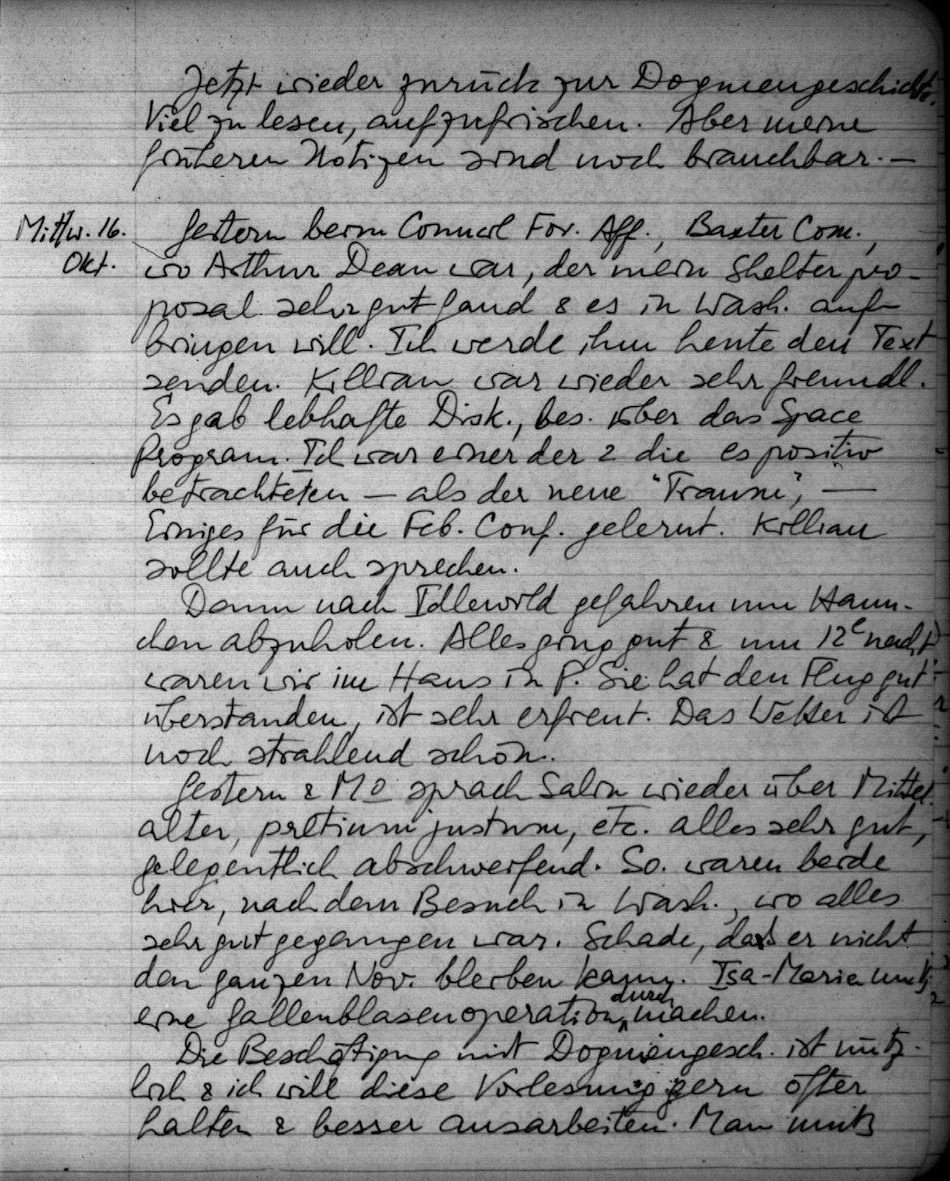 Jetzt wieder zurück zur Dogmengeschichte.
Viel zu lesen, aufzufrischen. Aber meine
früheren Notizen sind noch brauchbar. —
Mittw. 16. Gestern beim Council For. Aff., Baxter Com.,
Okt. wo Arthur Dean war, der mein Shelter pro-
posal sehr gut fand & es in Wash. auf-
bringen will. Ich werde ihm heute den Text
senden. Killian war wieder sehr freundl.
Es gab lebhafte Disk., bes. über das Space
Program. Ich war einer der 2 die es positiv
betrachteten — als der neue "Traum", —
Einiges für die Feb. Conf. gelernt. Killian
sollte auch sprechen.
Dann nach Idlewild gefahren um Hann-
chen abzuholen. Alles ging gut & um 12h nachts
waren wir im Haus in P. Sie hat den Flug gut
überstanden, ist sehr erfreut. Das Wetter ist
noch strahlend schön.
Gestern & Mo sprach Salin wieder über Mittel-
alter, pretium justum, etc. alles sehr gut,
gelegentlich abschweifend. So. waren beide
hier, nach dem Besuch in Wash., wo alles
sehr gut gegangen war. Schade, dass er nicht
den ganzen Nov. bleiben kann. Isa-Maria muss
eine Gallenblasenoperation durchmachen.
Die Beschäftigung mit Dogmengesch. ist nütz-
lich & ich will diese Vorlesung gern öfter
halten & besser ausarbeiten. Man muß